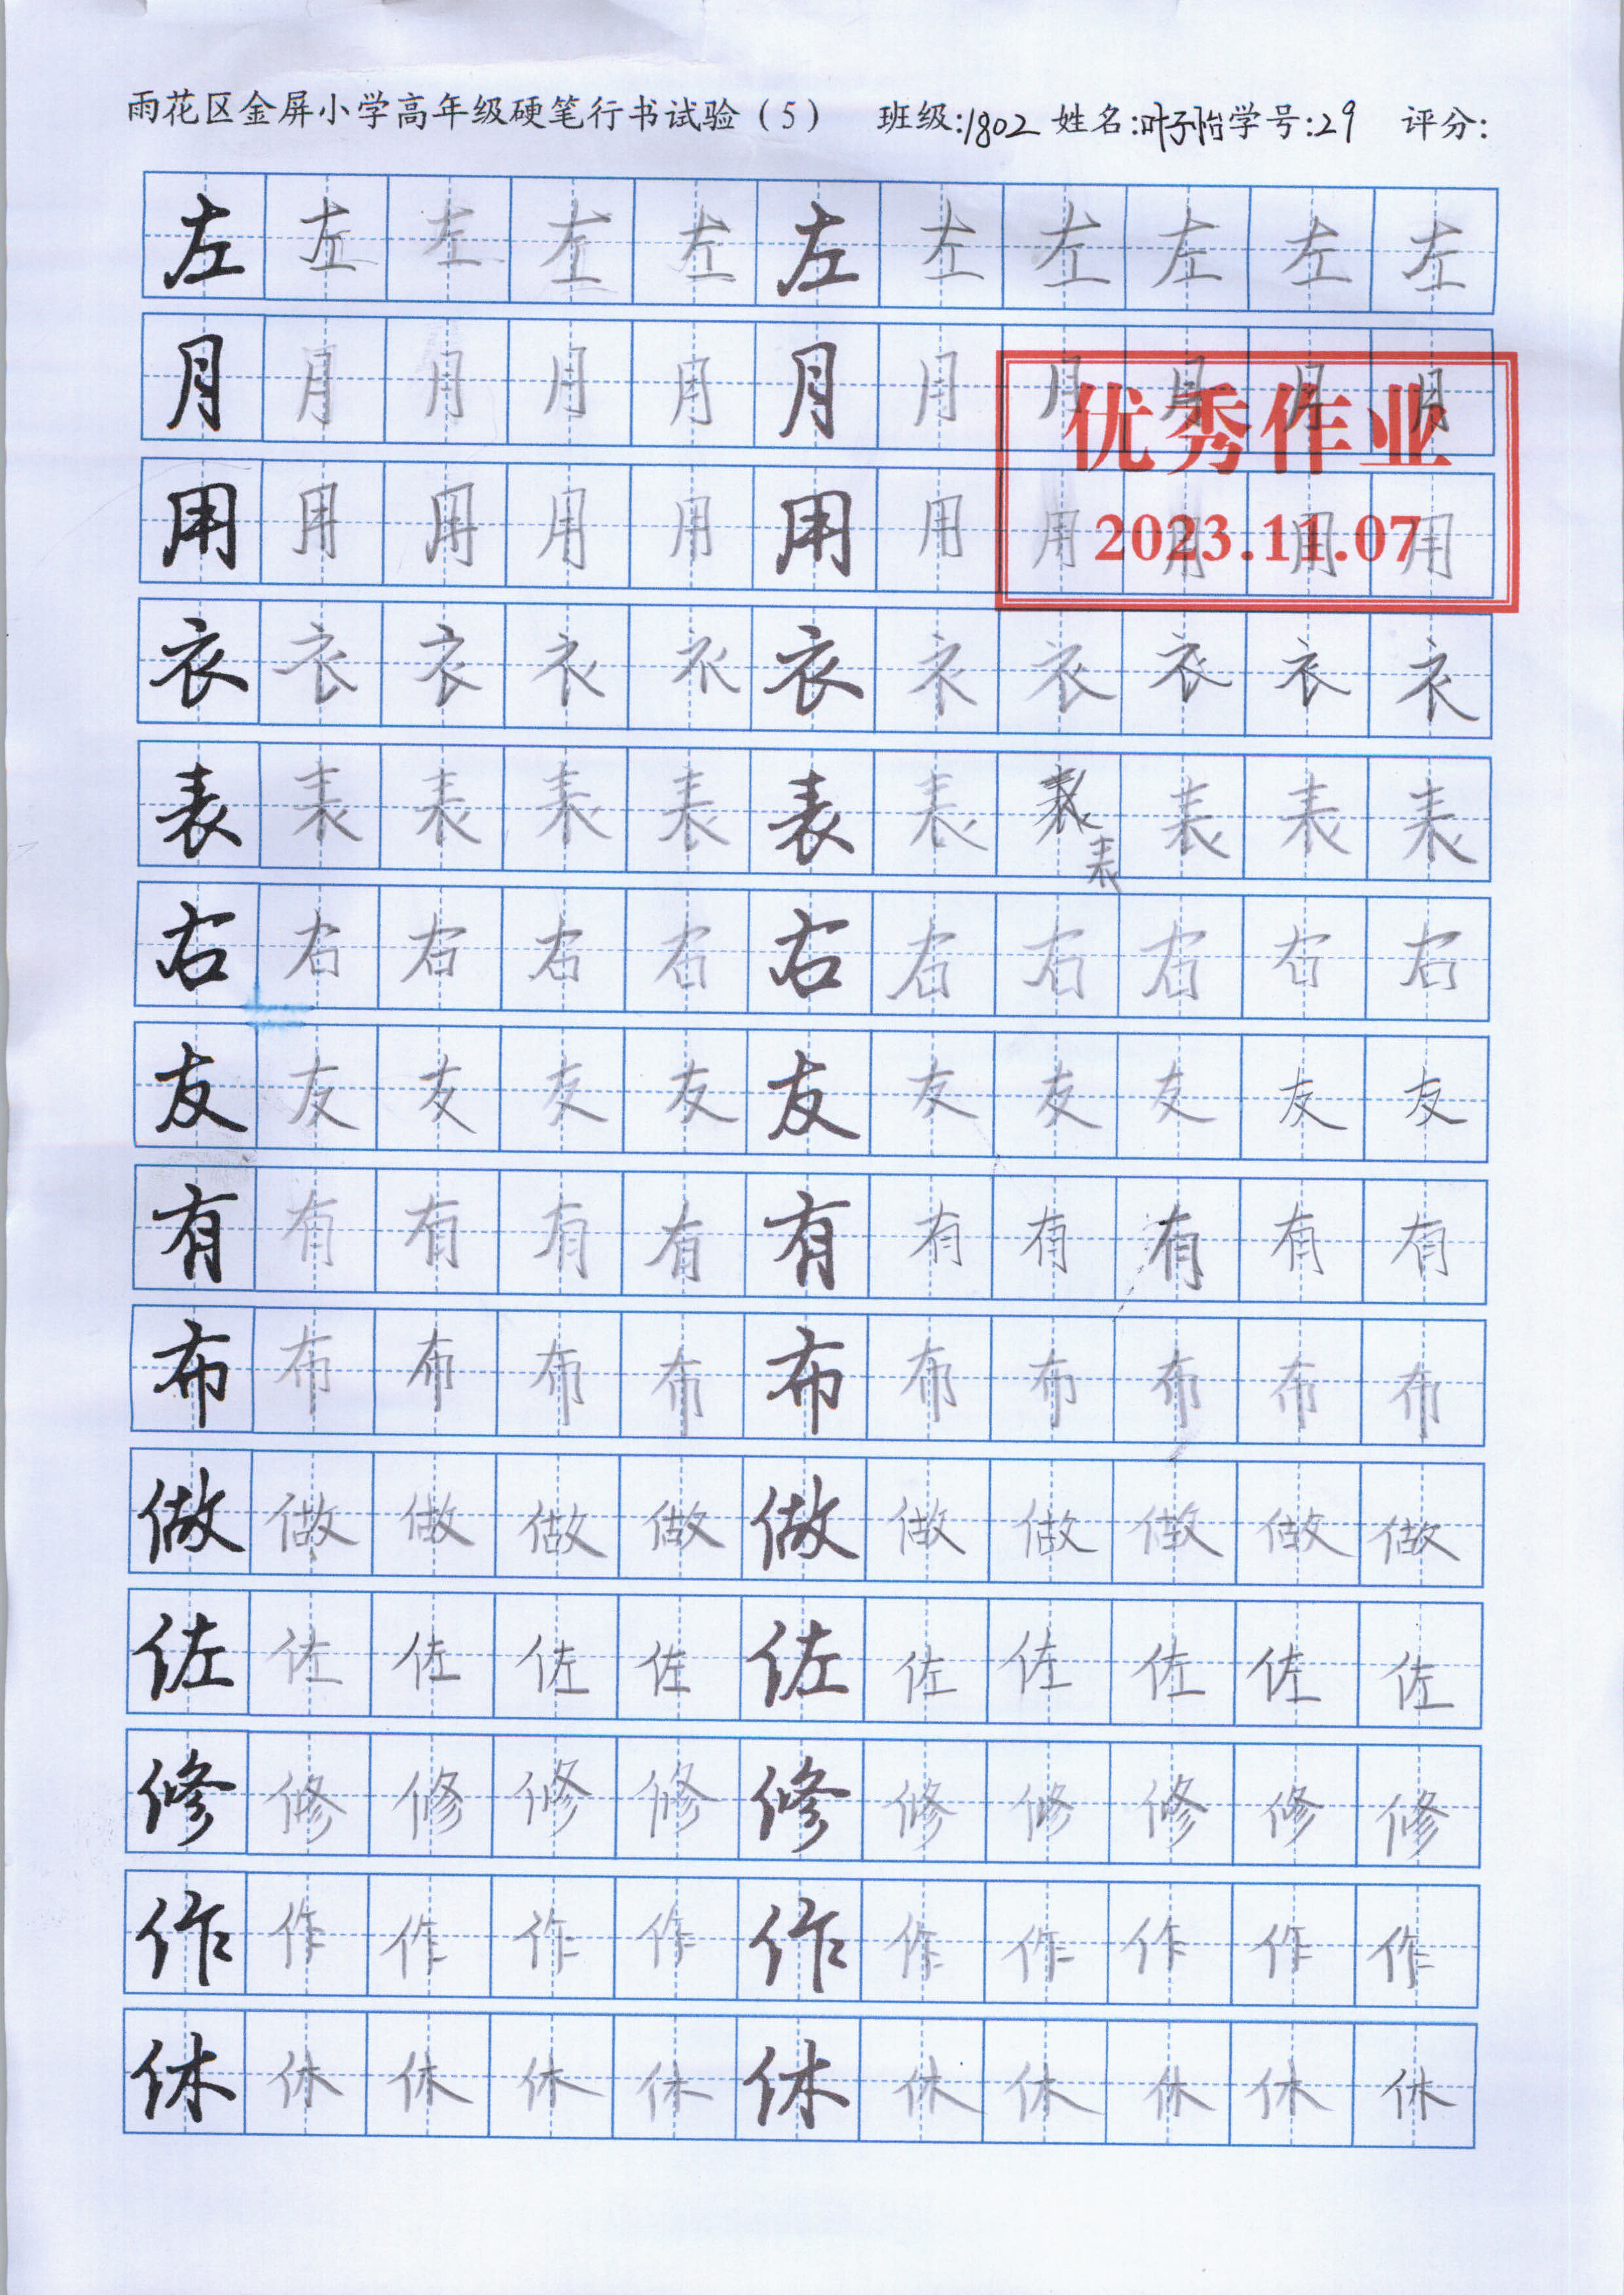 雨花区金屏小学高年级硬笔行书试验（5） 班级:1802 姓名:叶子怡 学号:29 评分:
左左左左左左左左左左左
月月月月月月月月月月月
优秀作业
用用用用用用用用用用用
2023.11.07
衣衣衣衣衣衣衣衣衣衣衣
表表表表表表表表表表表
右右右右右右右右右右右
友友友友友友友友友友友
有有有有有有有有有有有
布布布布布布布布布布布
做做做做做做做做做做做
佐佐佐佐佐佐佐佐佐佐佐
修修修修修修修修修修修
作作作作作作作作作作作
休休休休休休休休休休休